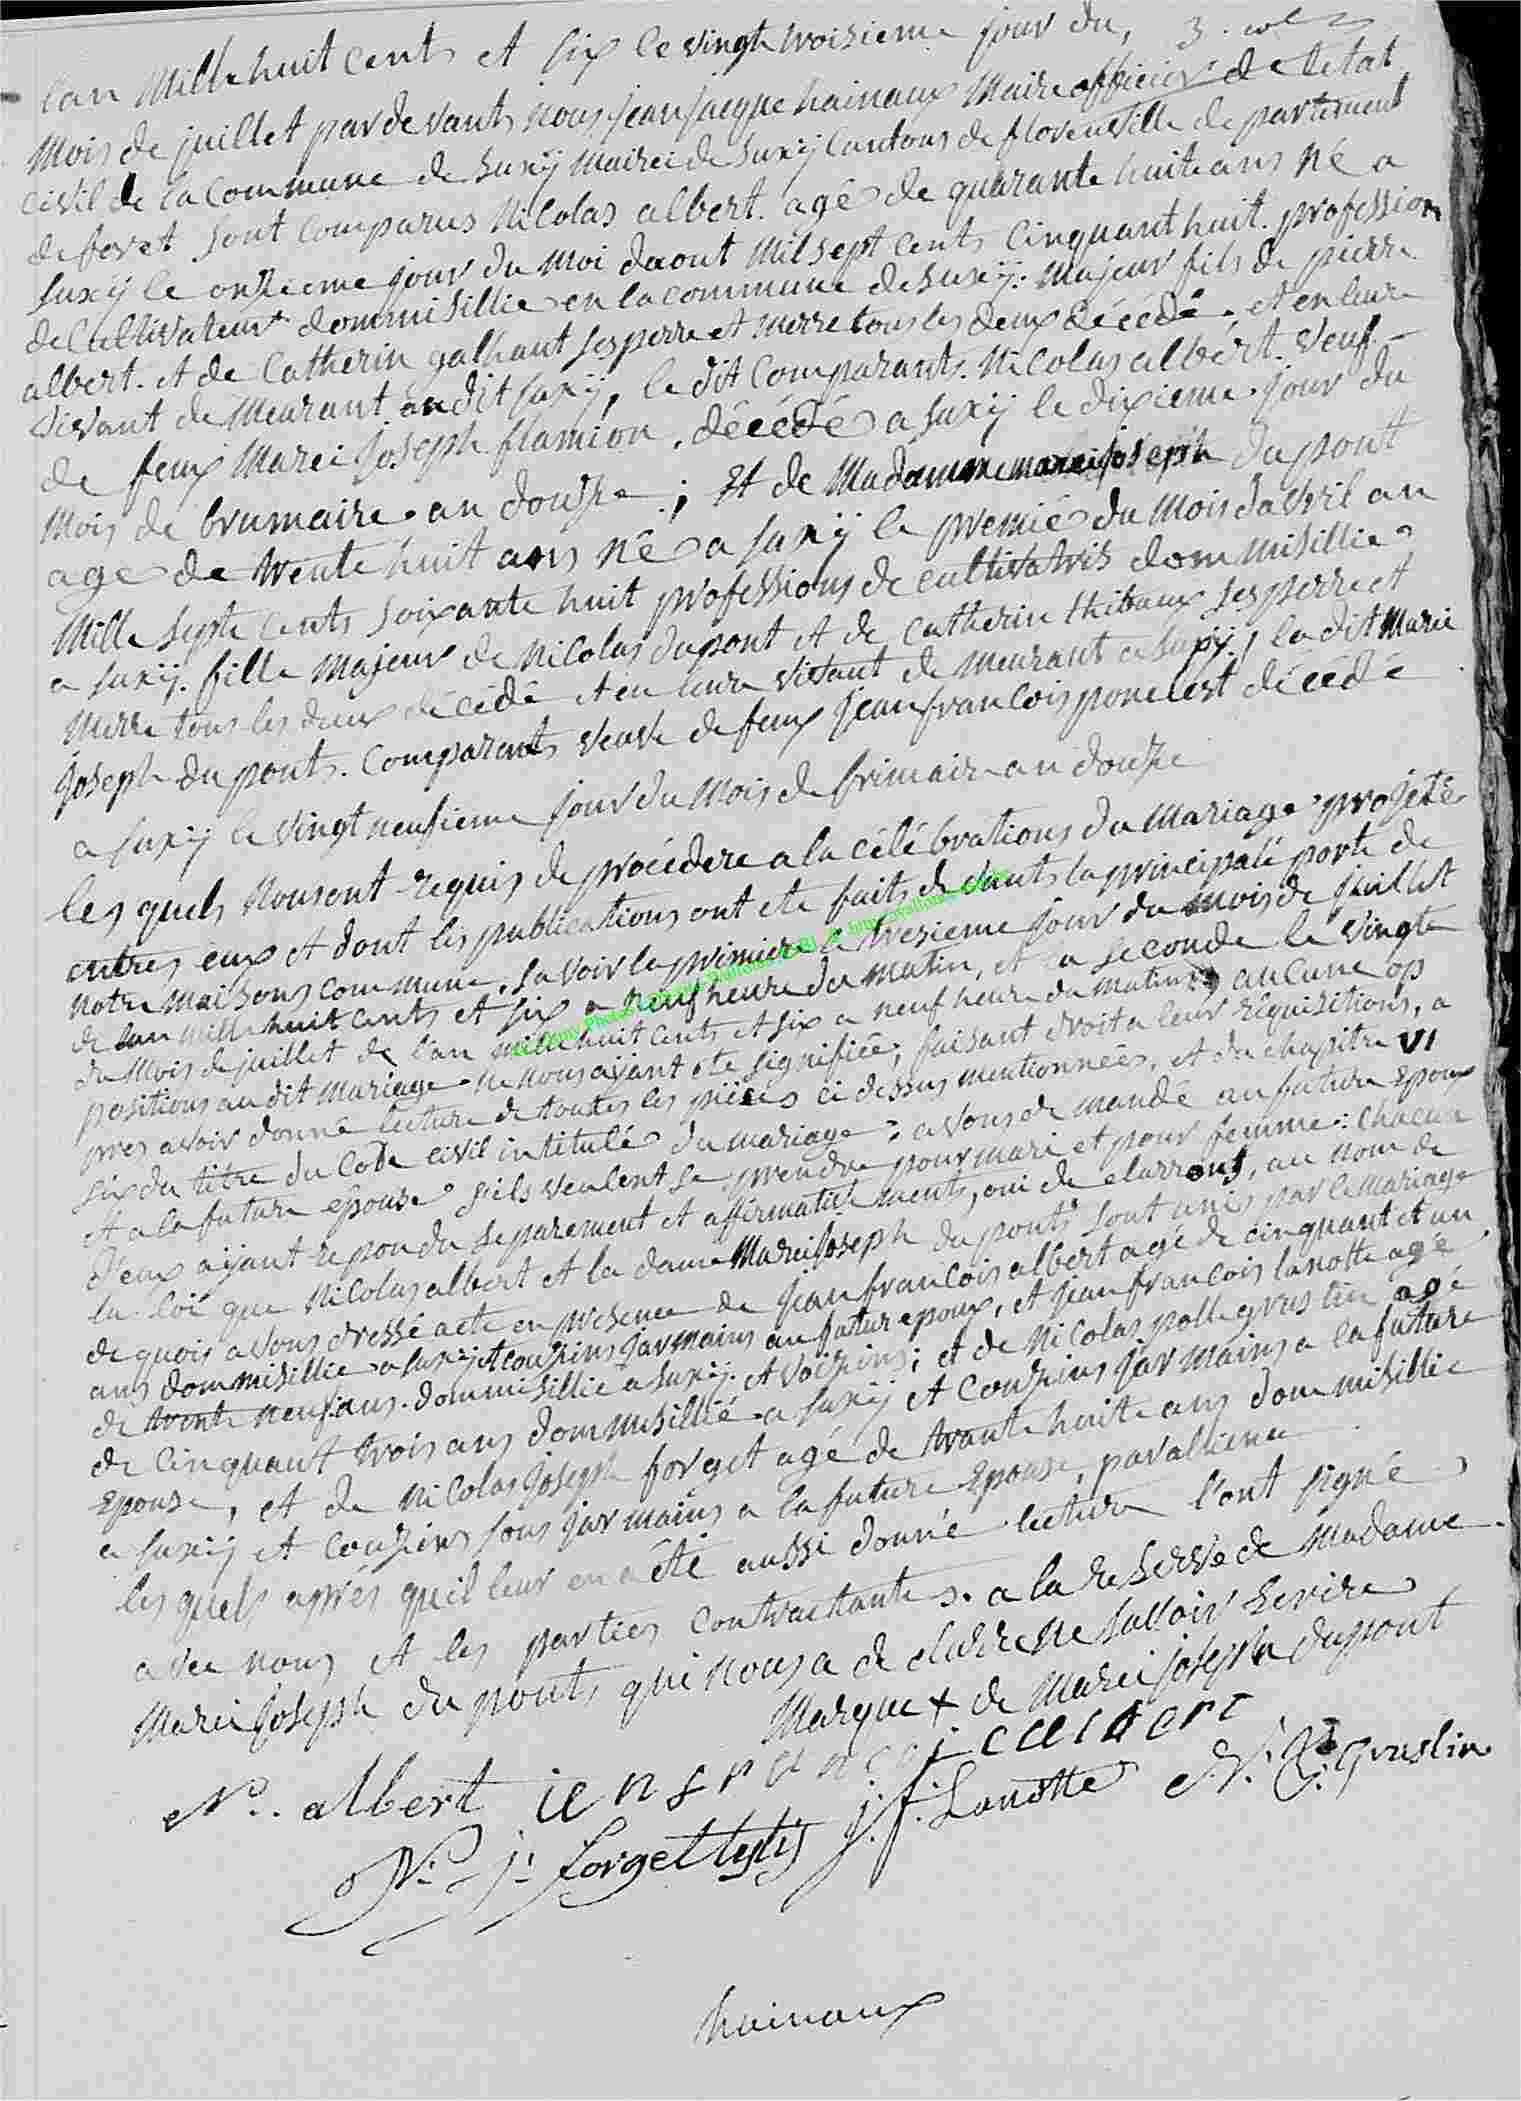 lan Mille huit cents et six le vingt troisieme jour du, 3.
Mois de juillet par devants nous jean jacque hainaux Maire officier de letat
civil de la commune de Suxÿ mairei de Suxÿ Cantons de florenville de partement
de foret sont comparus Nicolas albert. agé de quarante huite ans né a
Suxÿ le onzieme jour du Moi daout Mil sept cents cinquant huit. profession
de Cultivateur dommisillie en la commune de Suxÿ. Majeur fils de pierre
albert. et de Catherin galhaut ses perre et merre tous les deux décédé. et en leure
vivant de Meurant au dit Suxÿ, le dit Comparants. Nicolas albert. veuf
de feux Marei joseph flamion. décédé a Suxÿ le dixieme jour du
Mois de brumaire an douze; et de Madamme marei joseph dupont
age de trente huit ans né a Suxÿ le premié du Mois davril an
Mille septe cents soixante huit professions de cultivatris dommisillie
a Suxÿ. fille Majeur de Nicolas dupont et de catherin thibaux ses perre et
Merre tous les deux décédé et en leure vivant de meurant a Suxÿ, la dit Marei
joseph du ponts. Comparents veuve de feux jean francois poncelest décédé
a Suxÿ le vingt neufieme jour du Mois de frimaire an douze
les quels Nousont requis de procédere a la célébrations du Mariage projeté
entres eux et dont les publications ont ete faits de vants la principale porte de
notre maisons commune. savoir la primiere le tresieme jour du mois de juillet
de lan mille huit cents et six a neuf heure du matin, et la seconde le vingte
du Mois de juillet de l'an mille huit cents et six a neuf heure du matin aucune op
positions au dit mariage ne nous aÿant ete signifiée; faisant droit a leur réquisitions, a
pres avoir donné lecture de toutes les piéces ci dessus mentionnées, et du chapitre VI
six du titre du Code civil intitulé du mariage; avons de mandé au future epoux
et a la future epouse s'ils veulent se prendre pour mari et pour femme: chacun
d'eux aÿant repondu separement et affirmative ments, oui de clarrons, au nom de
la loi que Nicolas albert et la dame Marei joseph du ponts sont unis par le mariage
de quois avons dressé acte en presence de jean francois albert agé de cinquant et un
ans dommisillie a Suxÿ et couzins jarmains au future epoux, et jean francois lanotte agé
de trente neuf ans. dommisillie a Suxÿ. et voizins; et de Nicolas polle grustin agé
de Cinquant trois ans dommisillié a Suxÿ et Couzins jarmains a la future
epouse, et de Nicolas joseph forget agé de trante huite ans dommisillie
a Suxÿ et couzins sous jarmains a la future epouse, par allience
les quels aprés quil leur en a été aussi donné lecture l'ont signé
avec nous et les parties contractantes. a la reserve de Madame
Marei joseph du ponts qui nous a de clarre ne savoir écrire
Marque + de Marei joseph dupont
N. albert
N. j. forget J. f. Lanotte N. P. Grustin
hainaux